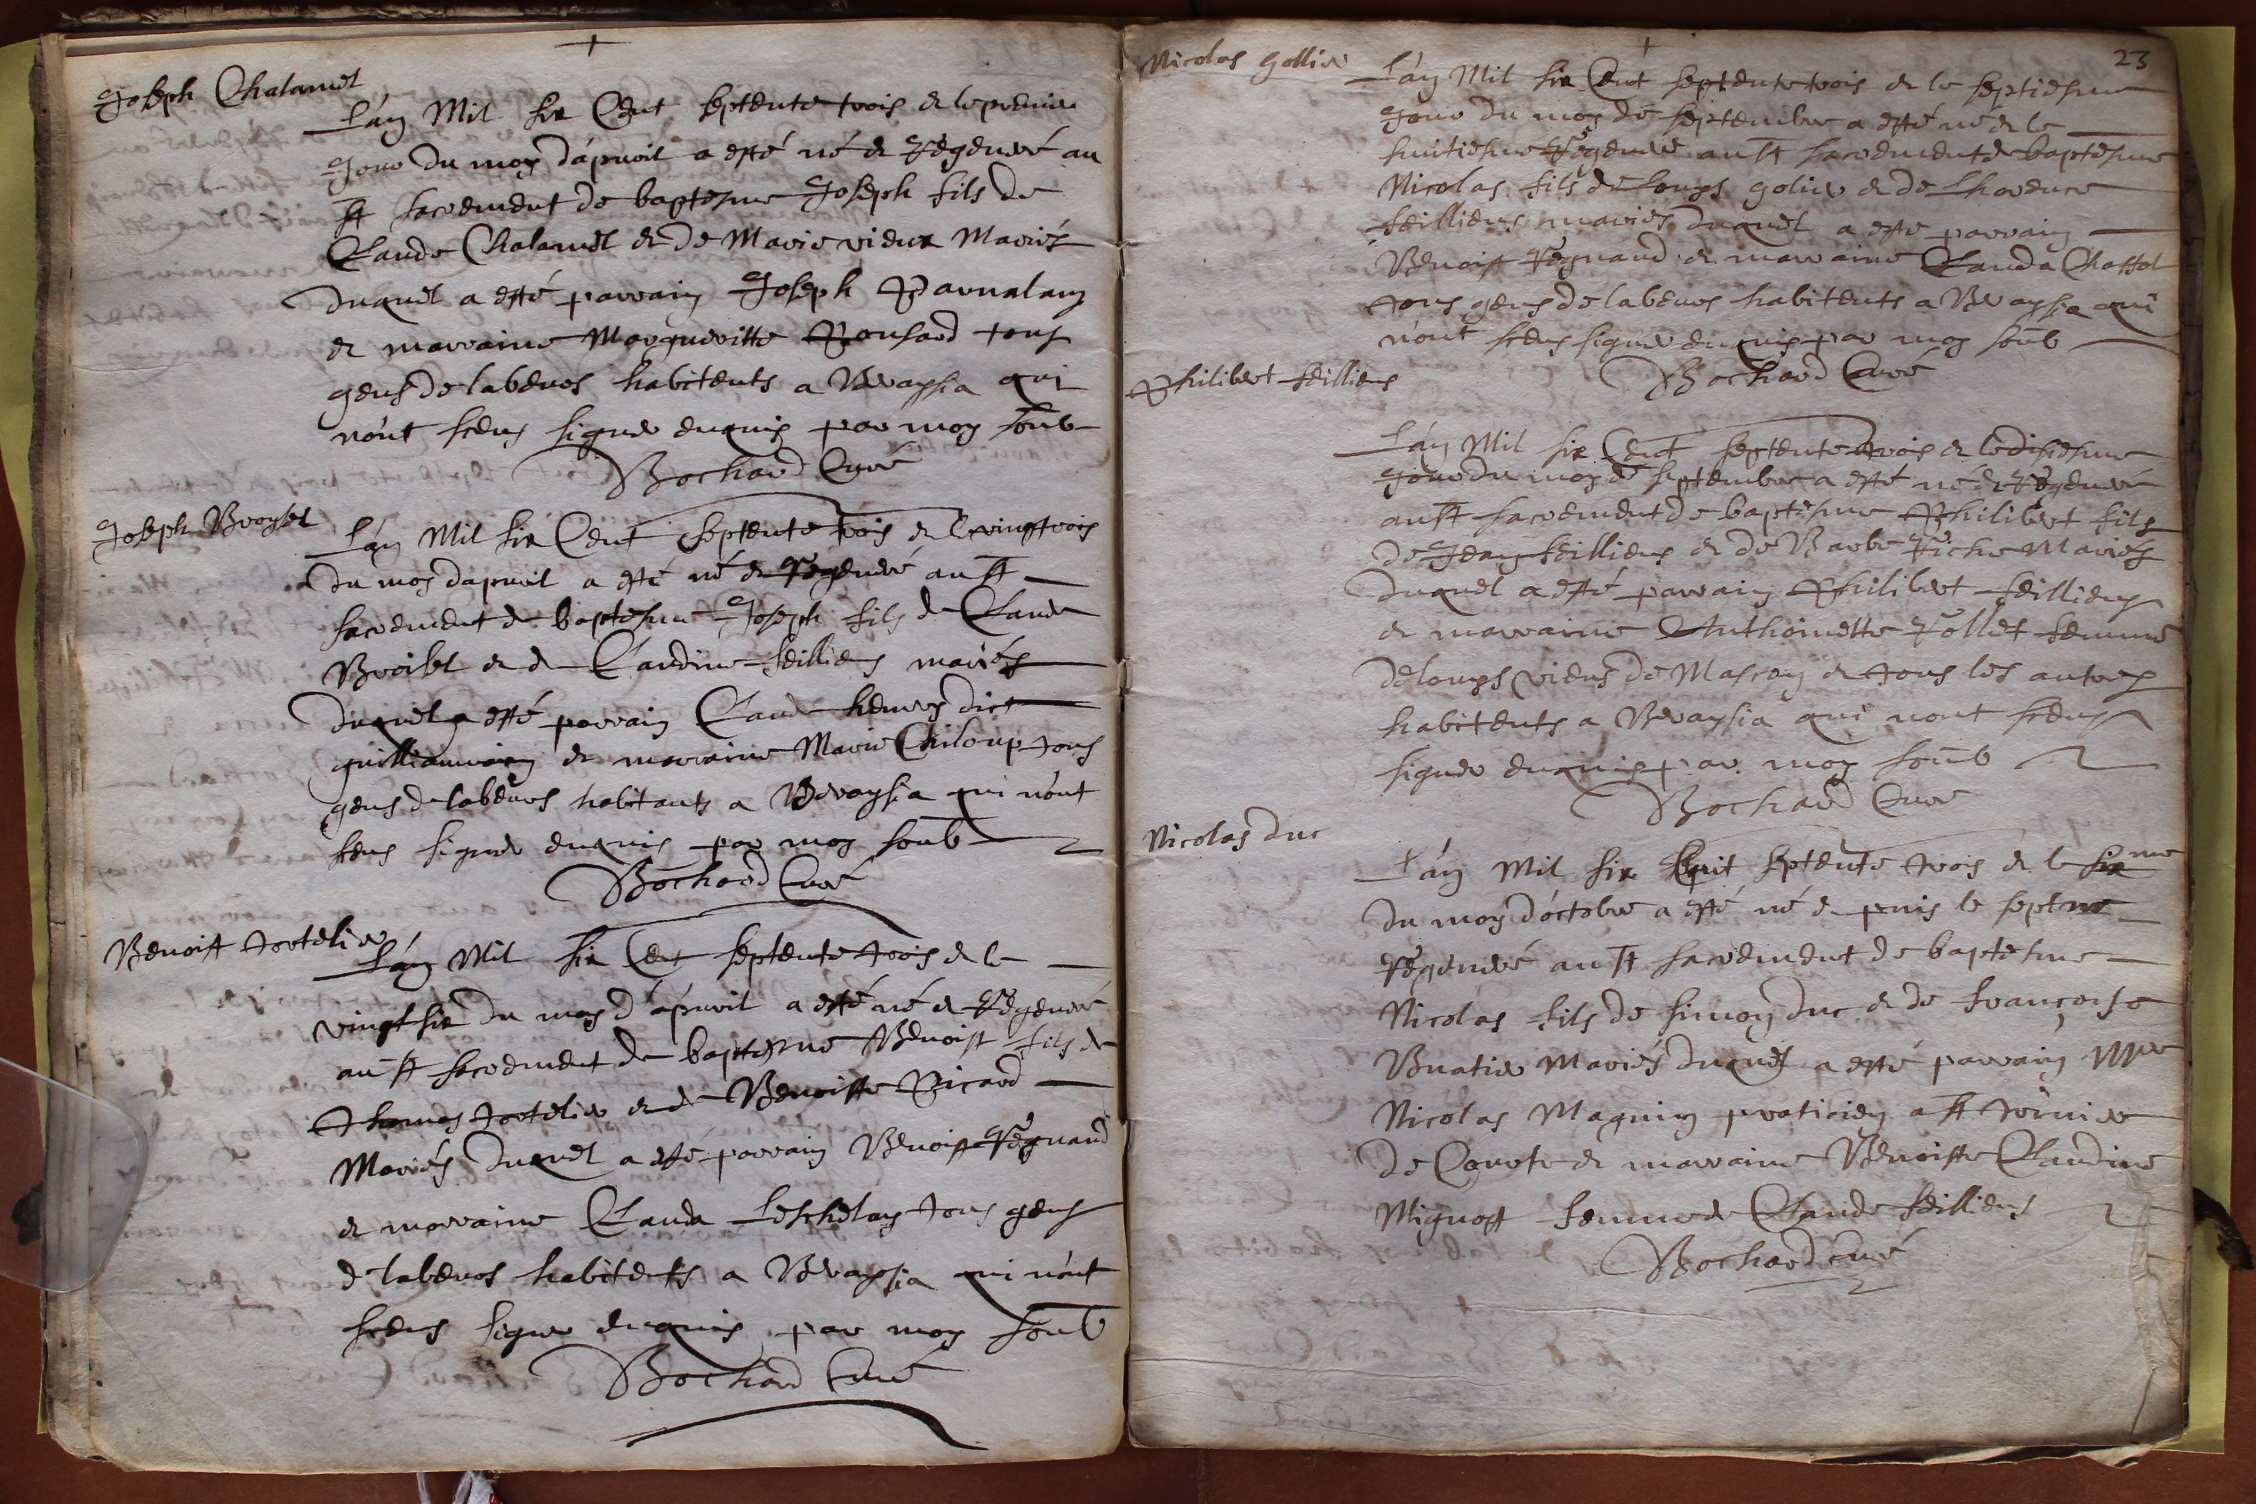 Joseph Chalamel
L'an Mil six Cent septente trois et le premier
Jour du moy d'apvril a esté né et Régéneré au
st sacrement de baptesme Joseph fils de
Claude Chalamel et de Marie vieux Mariés
duquel a esté parrain Joseph Parnalan
et marraine Margueritte Ronsard tous
gens de labeurs habitents a Bvaysia qui
n'ont sceus signer enquis par moy soub
Bochard Curé
Joseph Broyset
L'an Mil six Cent septente trois et le vingttrois
du moy dapvril a esté né et Régéneré au st
sacrement de baptesme Joseph fils de Claude
Broiset et de Claudine Seilliens mariés
duquel a esté parrain Claude henrys dict
guilliaumin et marraine Marie Chiloup tous
gens de labeurs habitants a Bvaysia qui n'ont
sceus signer enquis par moy soub
Bochard Curé
Benoist tortelier
L'an Mil six Cent septente trois et le
vingt six du moy d'apvril a esté né et Régéneré
au st sacrement de baptesme Benoist fils de
Thomas tortelier et de Benoiste Picard
Mariés duquel a esté parrain Benoist Régnaud
et marraine Clauda Leschelay tous gens
de labeurs habitents a Bvaysia qui n'ont
sceus signer enquis par moy soub
Bochard Curé
23
Nicolas Gollier
L'an Mil six Cent septente trois et le septiesme
Jour du moy de septembre a esté né et le
huitiesme Régéneré au st sacrement de baptesme
Nicolas fils de Louys golier et de Lhorence
Seilliens mariés duquel a esté parrain
Benoist Régnaud et marraine Clauda Chattel
tous gens de labeurs habitents a Bvaysia qui
n'ont sceus signer enquis par moy soub
Bochard Curé
Philibert Seilliens
L'an Mil six Cent septente trois et le dixiesme
Jour du moy de septembre a esté né et Régéneré
au st sacrement de baptesme Philibert fils
de Jean Seilliens et de Barbe Riche Mariés
duquel a esté parrain Philibert Seilliens
et marraine Anthoinette Rollet femme
de louys viens de Mascon et tous les autres
habitents a Bvaysia qui nont sceus
signer enquis par moy soub
Bochard Curé
Nicolas duc
L'an Mil six Cent septente trois et le six me
du moy d'octobre a esté né et puis le sept me
régéneré au st sacrement de baptesme
Nicolas fils de simon duc et de françoise
Buatier Mariés duquel a esté parrain Mre
Nicolas Magnin praticien a st Tornier
de Courte et marraine Benoiste Claudine
Mignost femme de Claude Seilliens
Bochard curé